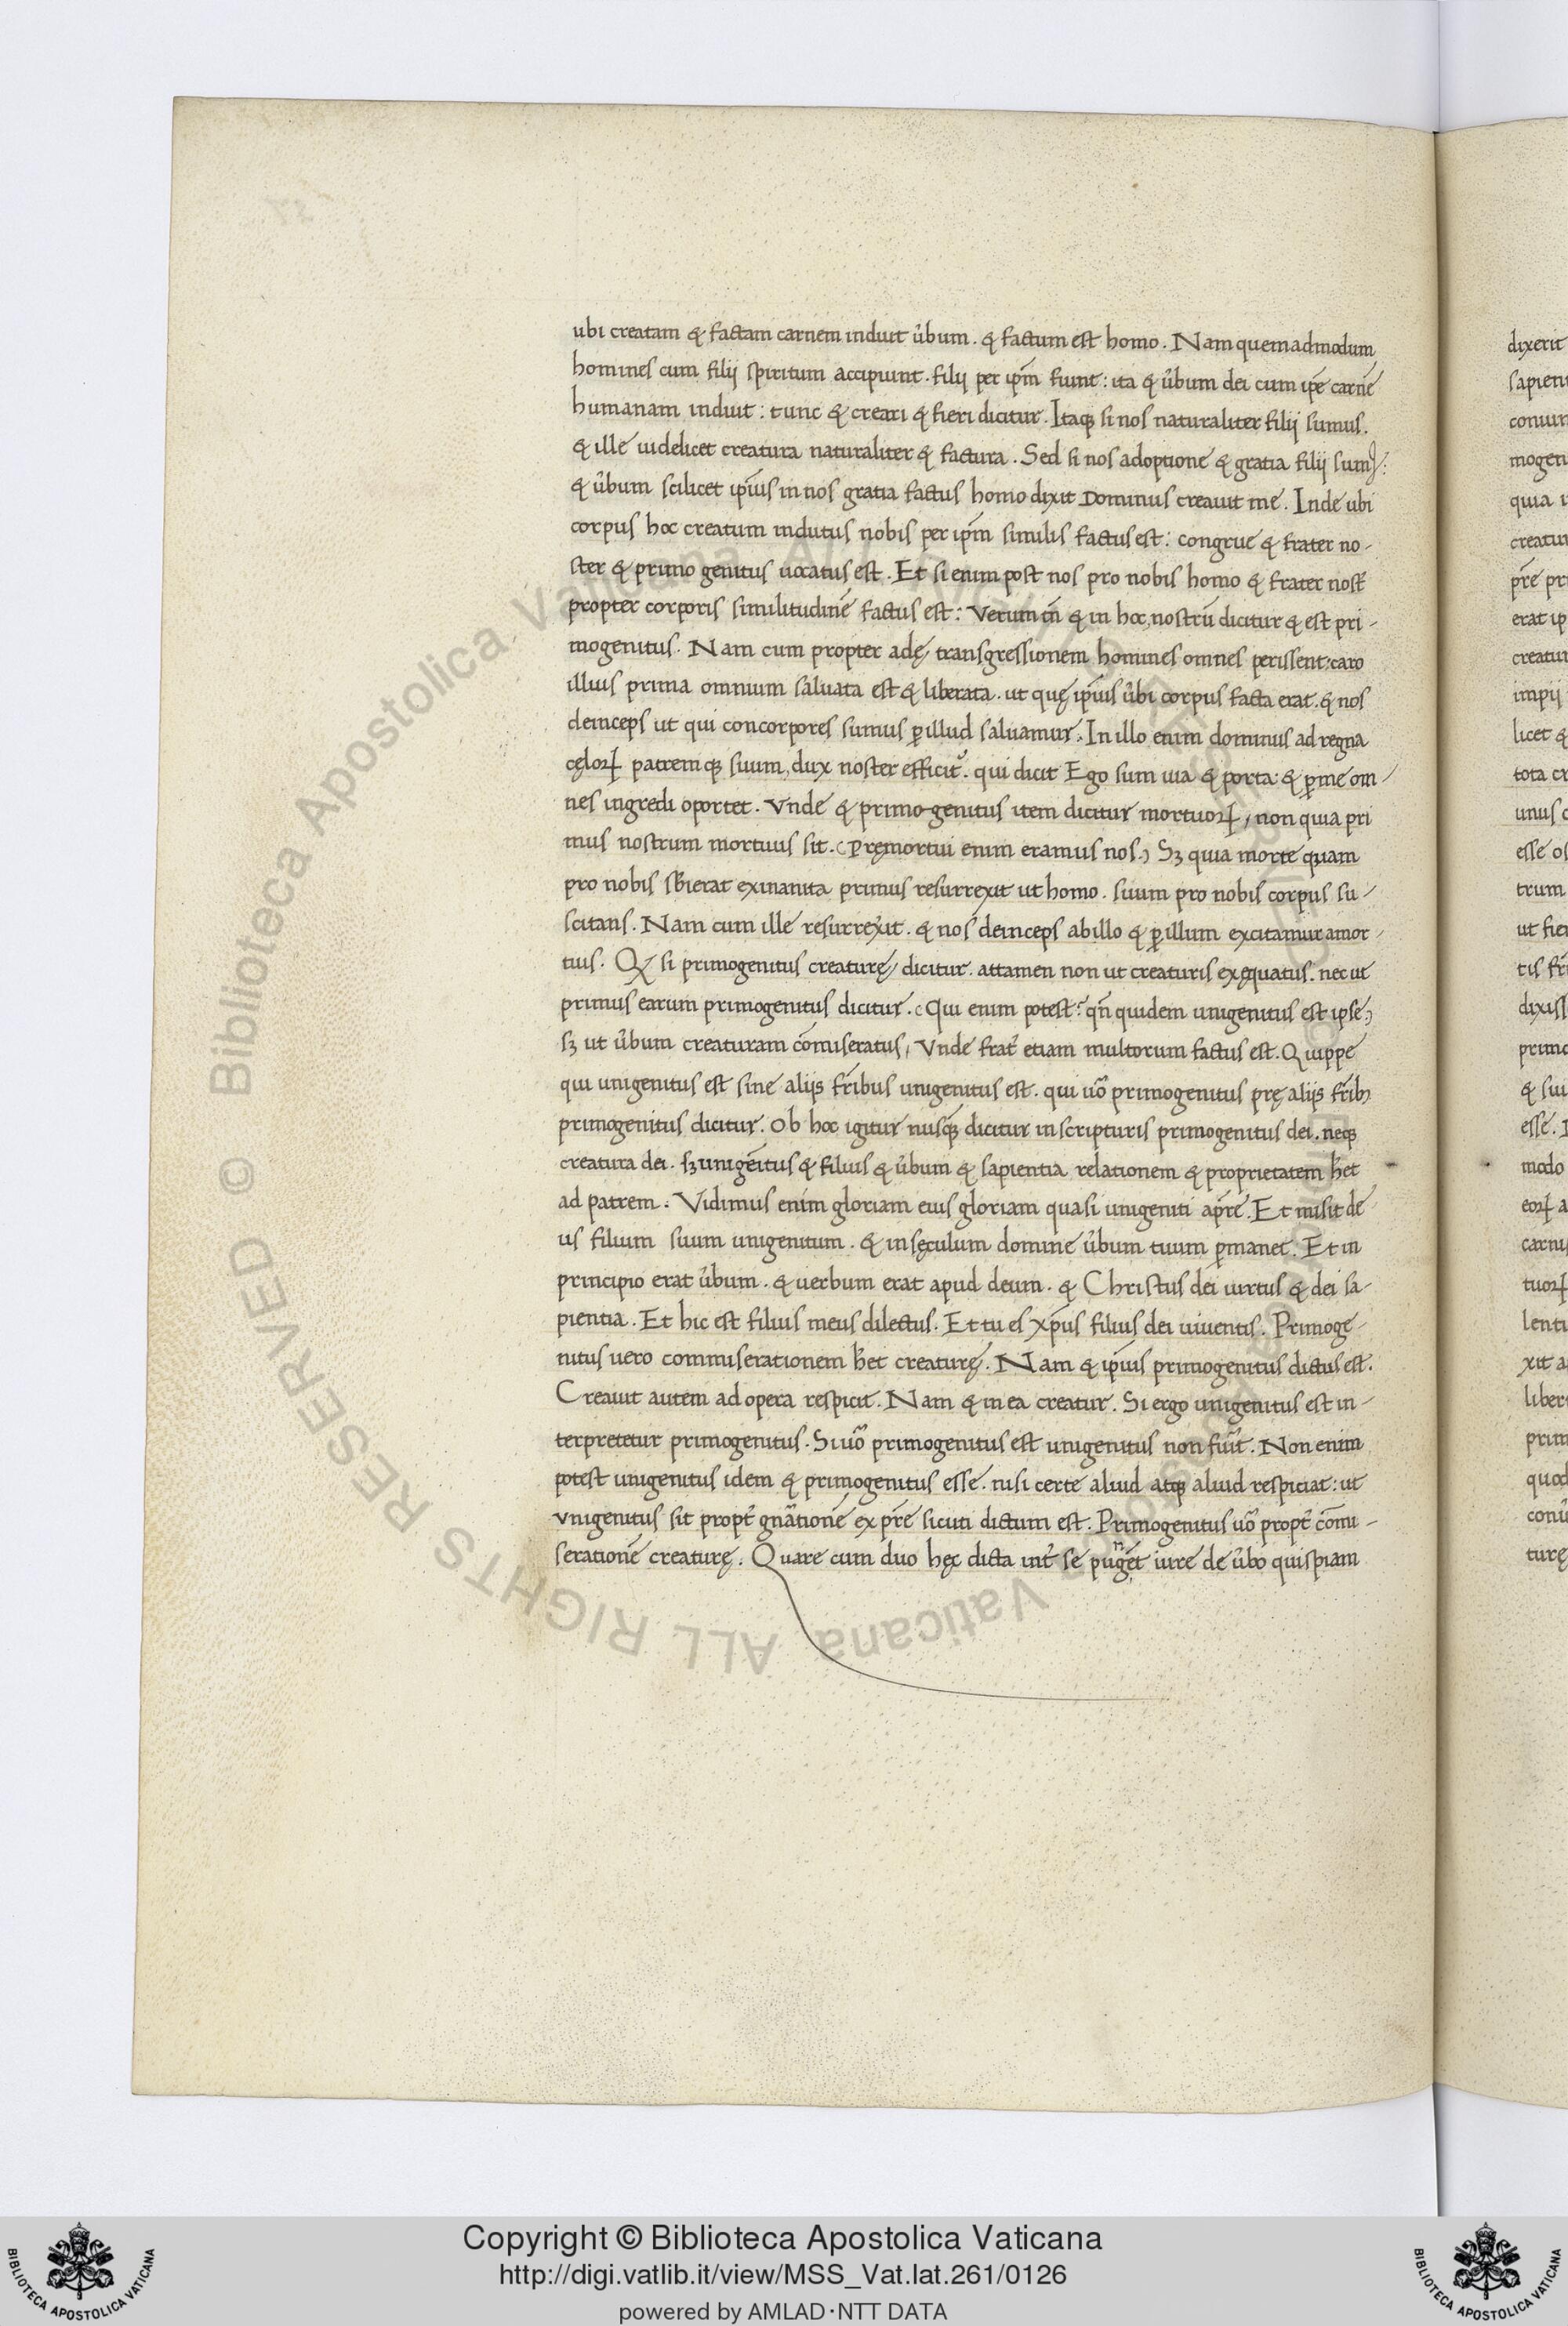 ubi creatam & factam carnem induit ůbum. & factum est homo. Nam quemadmodum
homines cum filij spiritum accipiunt. filij per ip̄m fiunt: ita & ůbum dei cum ip̄e carnē
humanam induit: tunc & creari & fieri dicitur. Itaqꝫ si nos naturaliter filij sumus.
& ille uidelicet creatura naturaliter & factura. Sed si nos adoptione & gratia filij sumꝰ:
& ůbum scilicet ip̄ius in nos gratia factus homo dixit Dominus creauit me. Inde ubi
corpus hoc creatum indutus nobis per ip̄m similis factus est: congrue & frater no-
ster & primo genitus uocatus est. Et si enim post nos pro nobis homo & frater nost̄
propter corporis similitudinē factus est: Verum tn̄ & in hoc, nostrū dicitur & est pri-
mogenitus. Nam cum propter adę transgressionem homines omnes perissent: caro
illius prima omnium saluata est & liberata. ut quę ip̄ius ůbi corpus facta erat. & nos
deinceps ut qui concorpores sumus ꝑ illud saluamur. In illo enim dominus ad regna
cęloꝝ patremqꝫ suum, dux noster efficit᷑. qui dicit Ego sum uia & porta: & ꝑ me om-
nes ingredi oportet. Vnde & primo-genitus item dicitur mortuoꝝ, non quia pri
mus nostrum mortuus sit. (Pręmortui enim eramus nos.) Sꝫ quia morte quam
pro nobis sb̄ierat exinanita primus resurrexit ut homo. suum pro nobis corpus su-
scitans. Nam cum ille resurrexit. & nos deinceps ab illo & ꝑ illum excitamur a mor-
tuis. Qͩ si primogenitus creaturę dicitur. attamen non ut creaturis exęquatus. nec ut
primus earum primogenitus dicitur. (Qui enim potest? qn̄quidem unigenitus est ipse)
sꝫ ut ůbum creaturam cōmiseratus, Vnde frat̄ etiam multorum factus est. Quippe
qui unigenitus est sine alijs fr̄ibus unigenitus est. qui uō primogenitus prę alijs fr̄ibꝫ
primogenitus dicitur. Ob hoc igitur nusqꝫ̄ dicitur in scripturis primogenitus dei. neqꝫ
creatura dei. sꝫ unigēitus & filius & ůbum & sapientia relationem & proprietatem h̄et
ad patrem: Vidimus enim gloriam eius gloriam quasi unigeniti a pr̄e. Et misit de-
us filium suum unigenitum. & in sęculum domine ůbum tuum ꝑmanet. Et in
principio erat ůbum. & uerbum erat apud deum. & Christus dei uirtus & dei sa-
pientia. Et hic est filius meus dilectus. Et tu es xp̄us filius dei uiuentis. Primoge-
nitus uero commiserationem h̄et creaturę. Nam & ip̄ius primogenitus dictus est.
Creauit autem ad opera respicit. Nam & in ea creatur. Si ergo unigenitus est in-
terpretetur primogenitus. Si uō primogenitus est unigenitus non fuit. Non enim
potest unigenitus idem & primogenitus esse. nisi certe aliud atqꝫ aliud respiciat: ut
vnigenitus sit propt̄ gn̄ationē ex pr̄e sicuti dictum est. Primogenitus uō propt̄ cōmi-
serationē creaturę. Quare cum duo hęc dicta int̄ se pugnēt iure de ůbo quispiam
dixerit
sapien
coniun
mogen
quia
creatur
pr̄e pr
erat ip
creatur
impij
licet &
tota cr
unus
esse
trum
ut fie
tis fr̄
dixiss
primo
& sui
esse.
modo
eoꝝ a
carni
tuoꝝ
lenti
xit a
liber
prim
quod
conu
turę
Biblioteca Apostolica Vaticana ALL RIGHTS RESERVED ©
Copyright © Biblioteca Apostolica Vaticana
http://digi.vatlib.it/view/MSS_Vat.lat.261/0126
powered by AMLAD·NTT DATA
BIBLIOTECA APOSTOLICA VATICANA
BIBLIOTECA APOSTOLICA VATICANA